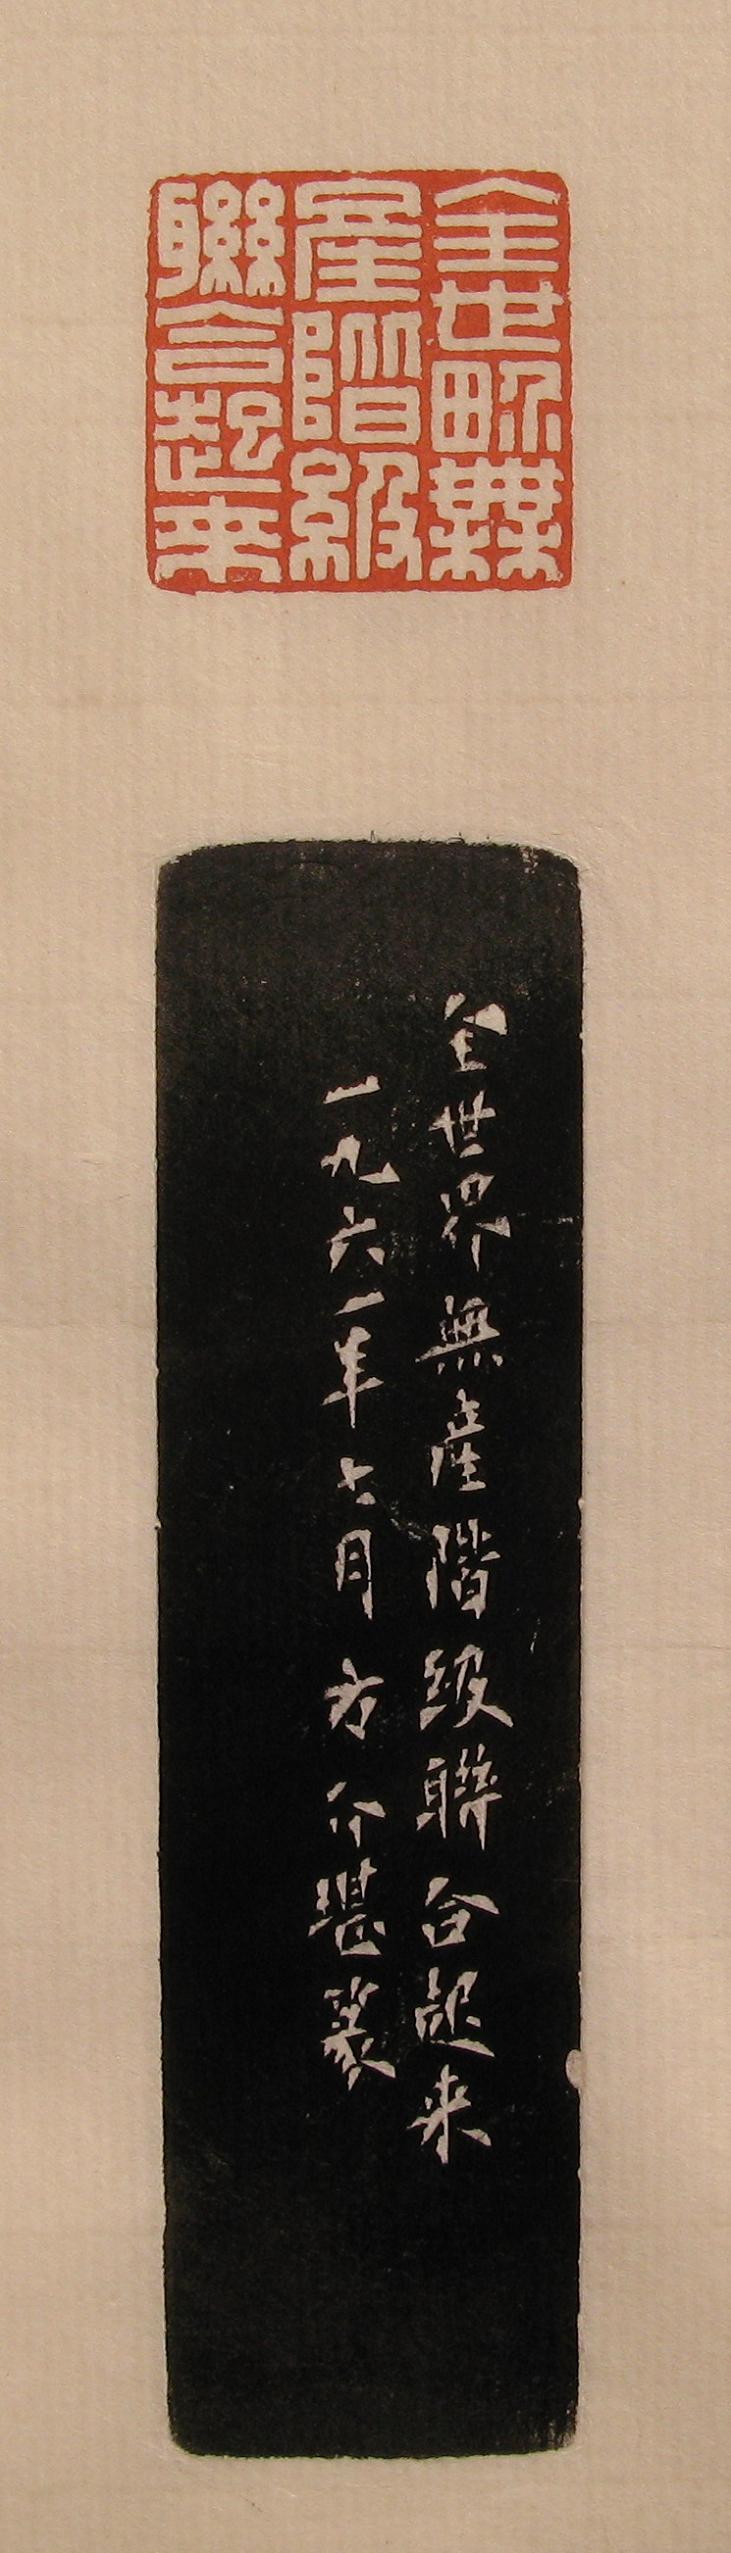 全世界無
產階級
聯合起来
全世界無產階級聯合起来
一九六一年七月方介堪篆